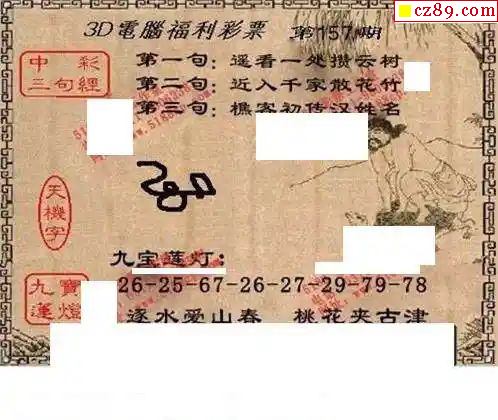 cz89.com
3D電腦福利彩票 第157期
中彩
三句經
第一句：遥看一处攒云树
第二句：近入千家散花竹
第三句：樵客初传汉姓名
天機字
九宝莲灯：
九寶蓮燈
26-25-67-26-27-29-79-78
逐水爱山春 桃花夹古津